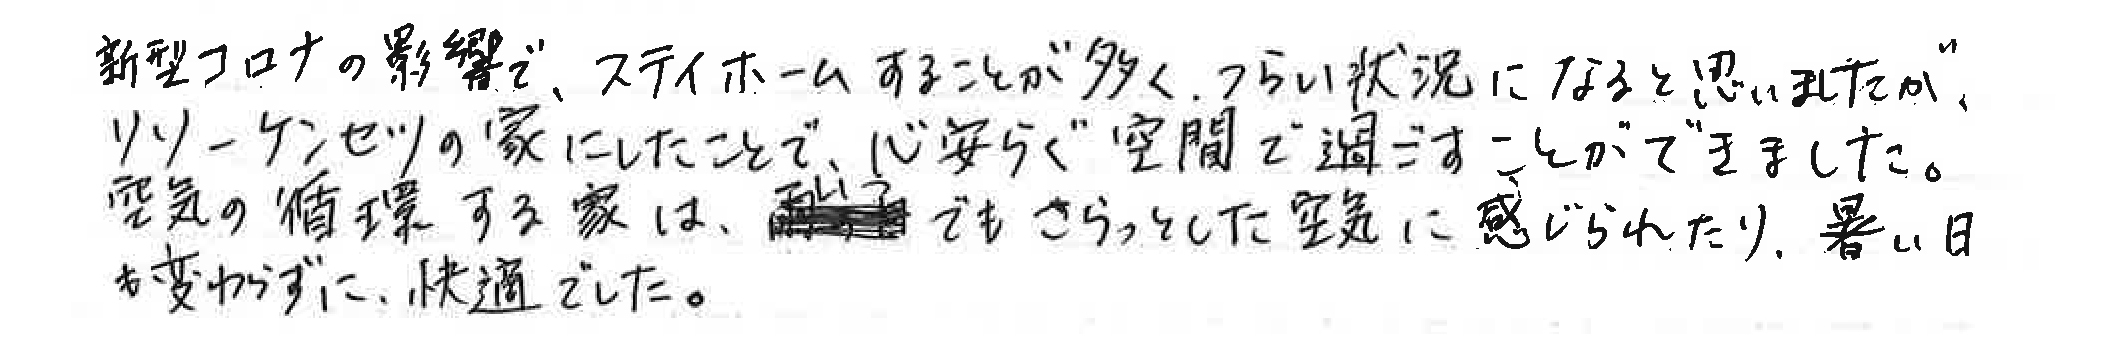 新型コロナの影響で、ステイホームすることが多く、つらい状況になると思いましたが、
リソーケンセツの家にしたことで、心安らぐ空間で過ごすことができました。
空気の循環する家は、でもさらっとした空気に感じられたり、暑い日
も変わらずに、快適でした。